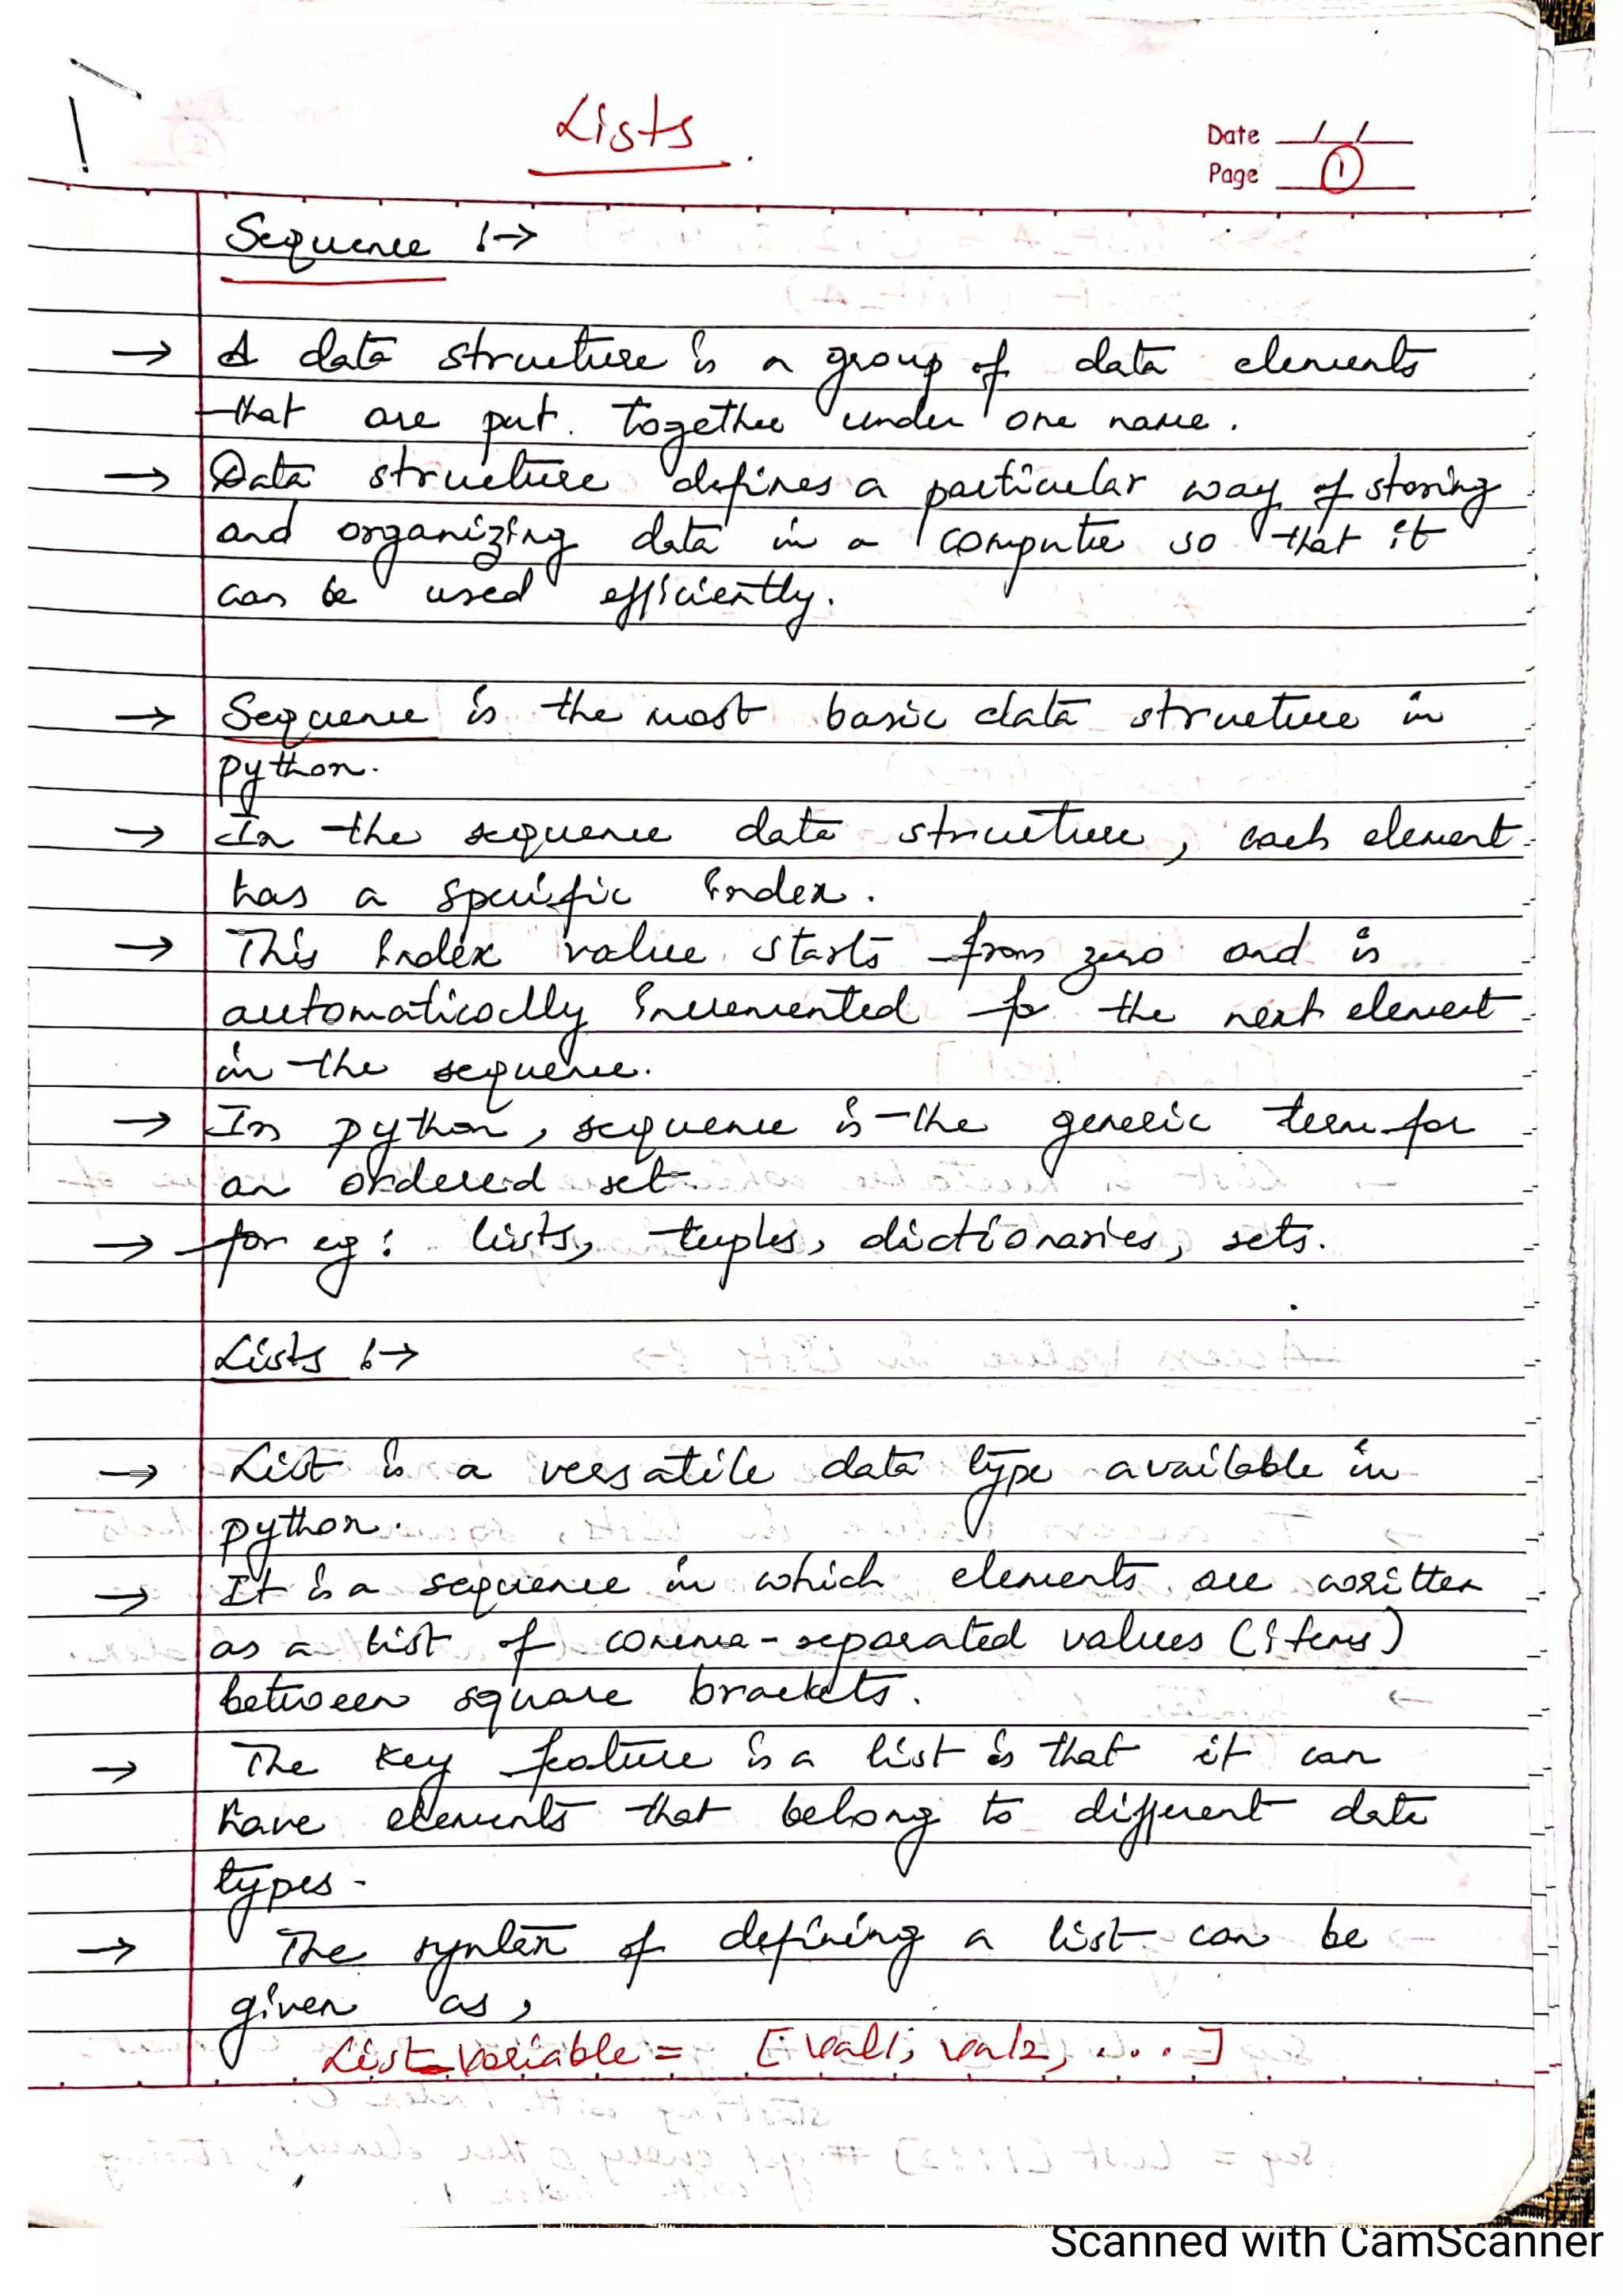 Lists.
Date / /
Page 1
Sequence :→
→ A data structure is a group of data elements
that are put together under one name.
→ Data structure defines a particular way of storing
and organizing data in a computer so that it
can be used efficiently.
→ Sequence is the most basic data structure in
python.
→ In the sequence data structure, each element
has a specific index.
→ This index value starts from zero and is
automatically incremented for the next element
in the sequence.
→ In python, sequence is the generic term for
an ordered set.
→ for eg: lists, tuples, dictionaries, sets.
Lists :→
→ List is a versatile data type available in
python.
→ It is a sequence in which elements are written
as a list of comma-separated values (items)
between square brackets.
→ The key feature is a list is that it can
have elements that belong to different data
types.
→ The syntax of defining a list can be
given as,
List_variable = [val1, val2, ...]
Scanned with CamScanner